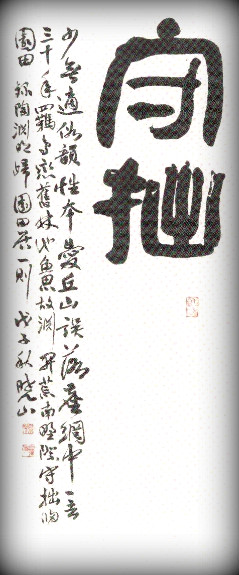 守拙
少無適俗韻性本愛丘山誤落塵網中一去
三十年羈鳥戀舊林池魚思故淵開荒南野際守拙歸
園田 錄陶淵明歸園田居一則 戊子秋曉山